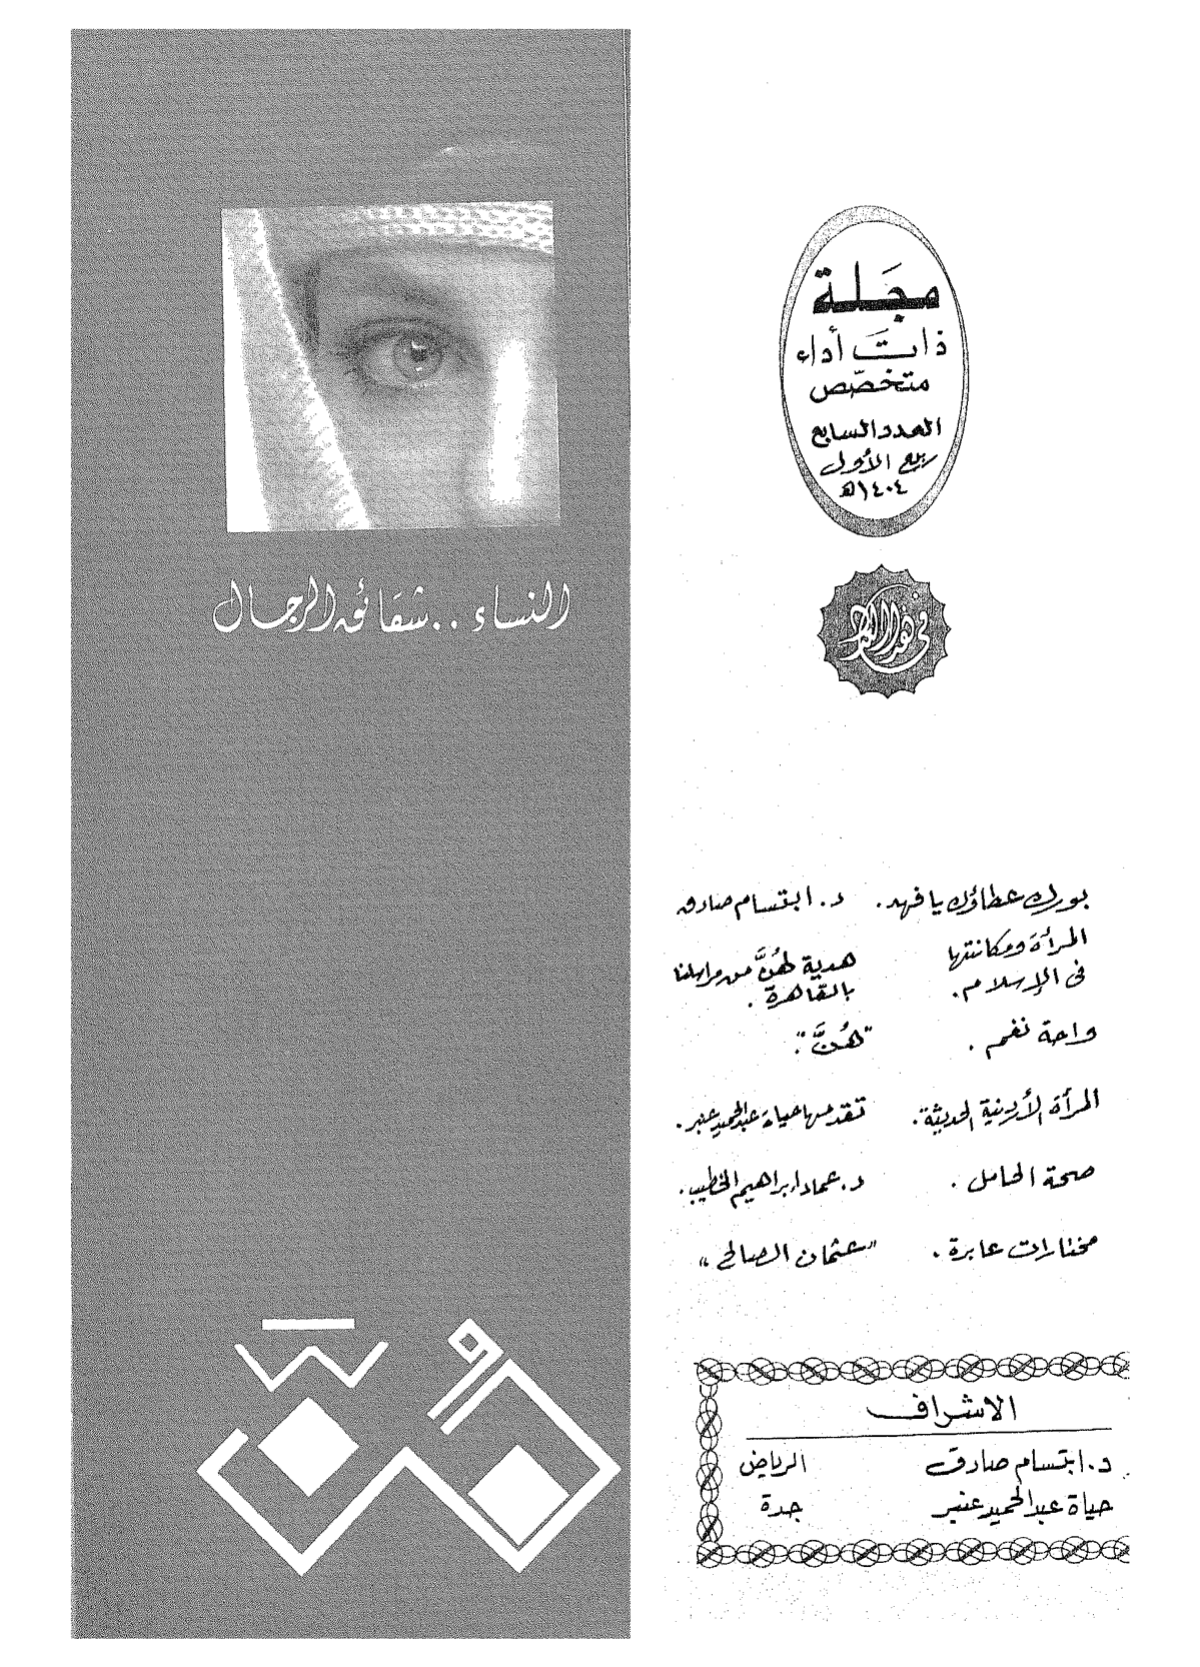 مجلة
ذات أداء
متخصّص
العدد السابع
ربيع الأول
١٤٠٤هـ
في هذا العدد
النساء .. شقائق الرجال
بورك عطاؤك يا فهد . د. ابتسام صادق
المرأة ومكانتها في الإسلام . هدية لهُنَّ من مراسلنا بالقاهرة .
واحة نغم . "هُنَّ" .
المرأة الأردنية الحديثة . تقدمها حياة عبدالحميد عنبر .
صحة الحامل . د. عماد إبراهيم الخطيب .
مختارات عابرة . "عثمان الصالح"
هنّ
الاشراف
د. ابتسام صادق الرياض
حياة عبدالحميد عنبر جدة